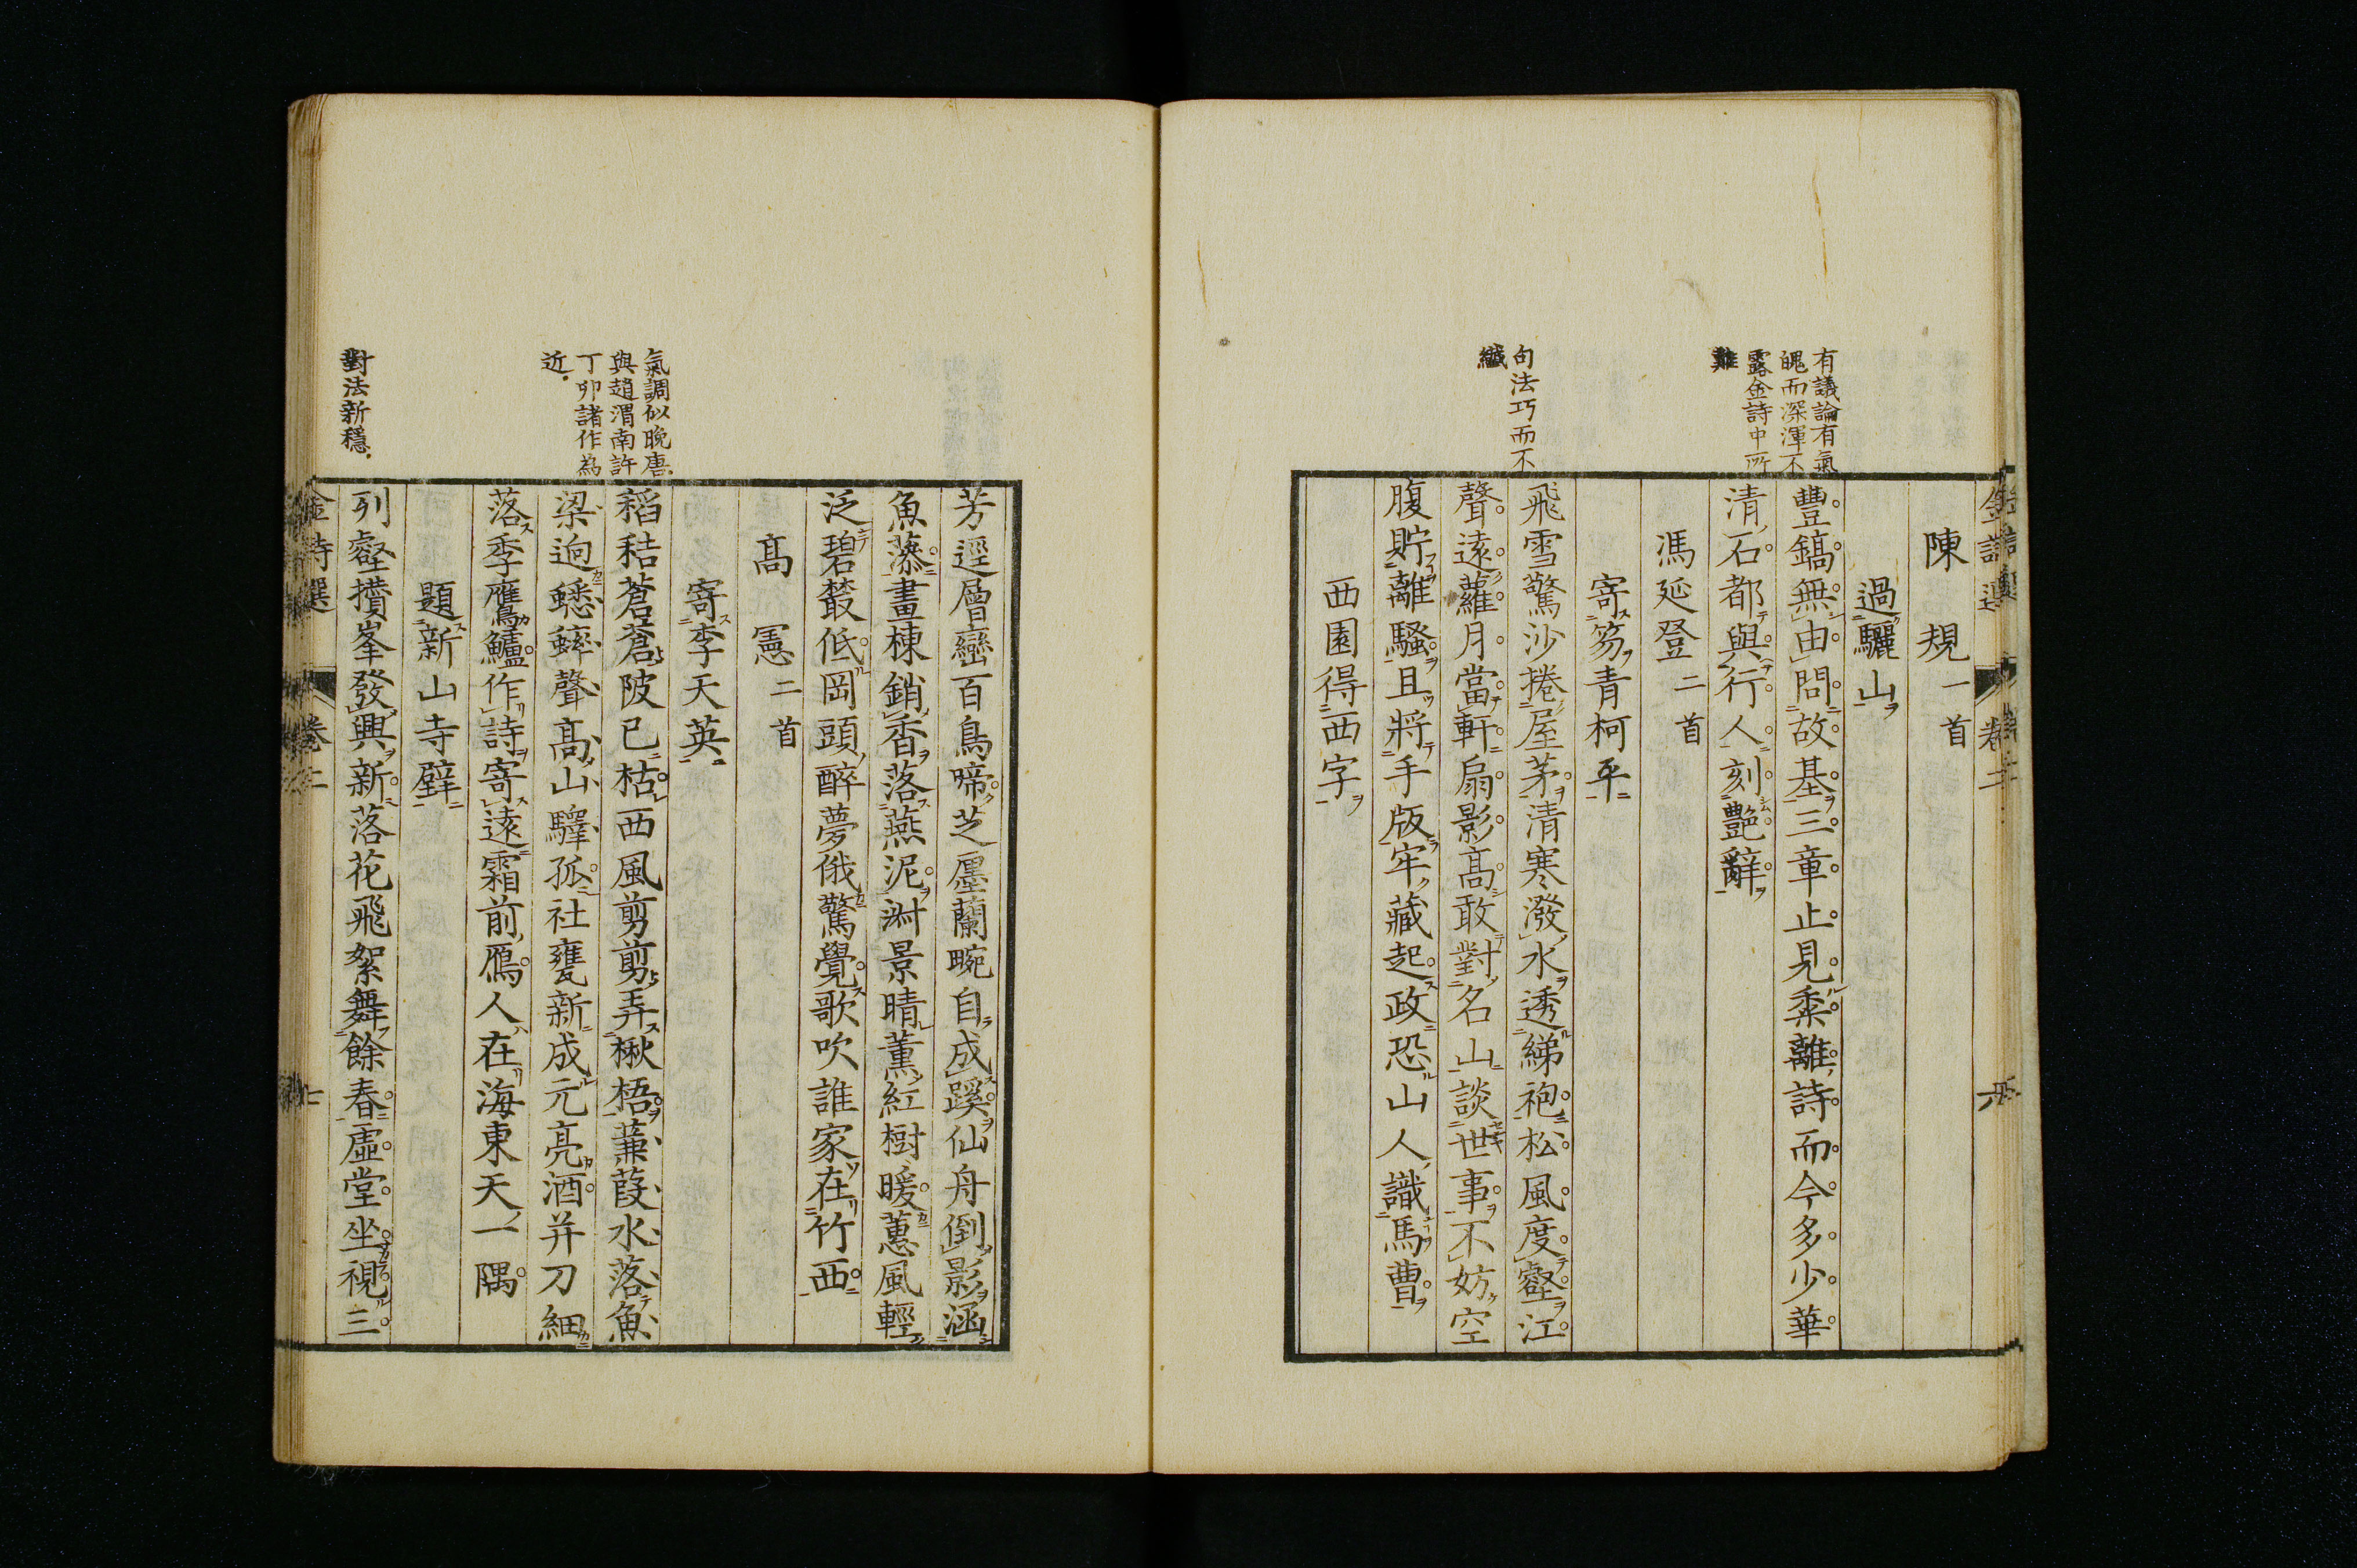 有議論有氣
魄而深渾不
露金詩中所
難
句法巧而不
纖
陳規一首
過驪山
豐鎬無由問故基三章止見黍離詩而今多少華
清石都與行人刻艷辭
馮延登二首
寄笏青柯平
飛雪驚沙捲屋茅清寒潑水透綈袍松風度壑江
聲遠蘿月當軒扇影高敢對名山談世事不妨空
腹貯離騷且將手版牢藏起政恐山人識馬曹
西園得西字
氣調似晚唐
與趙渭南許
丁卯諸作為
近
對法新穩
芳逕層巒百鳥啼芝廛蘭畹自成蹊仙舟倒影涵
魚藻畫棟銷香落燕泥淑景晴薰紅樹暖蕙風輕
泛碧叢低岡頭醉夢俄驚覺歌吹誰家在竹西
高憲二首
寄李天英
稻秸蒼蒼陂已枯西風剪剪弄楸梧蒹葭水落魚
梁逈蟋蟀聲高山驛孤社甕新成元亮酒并刀細
落季鷹鱸作詩寄遠霜前鴈人在海東天一隅
題新山寺壁
列壑攢峯發興新落花飛絮舞餘春虛堂坐視三
金詩選
卷二
七